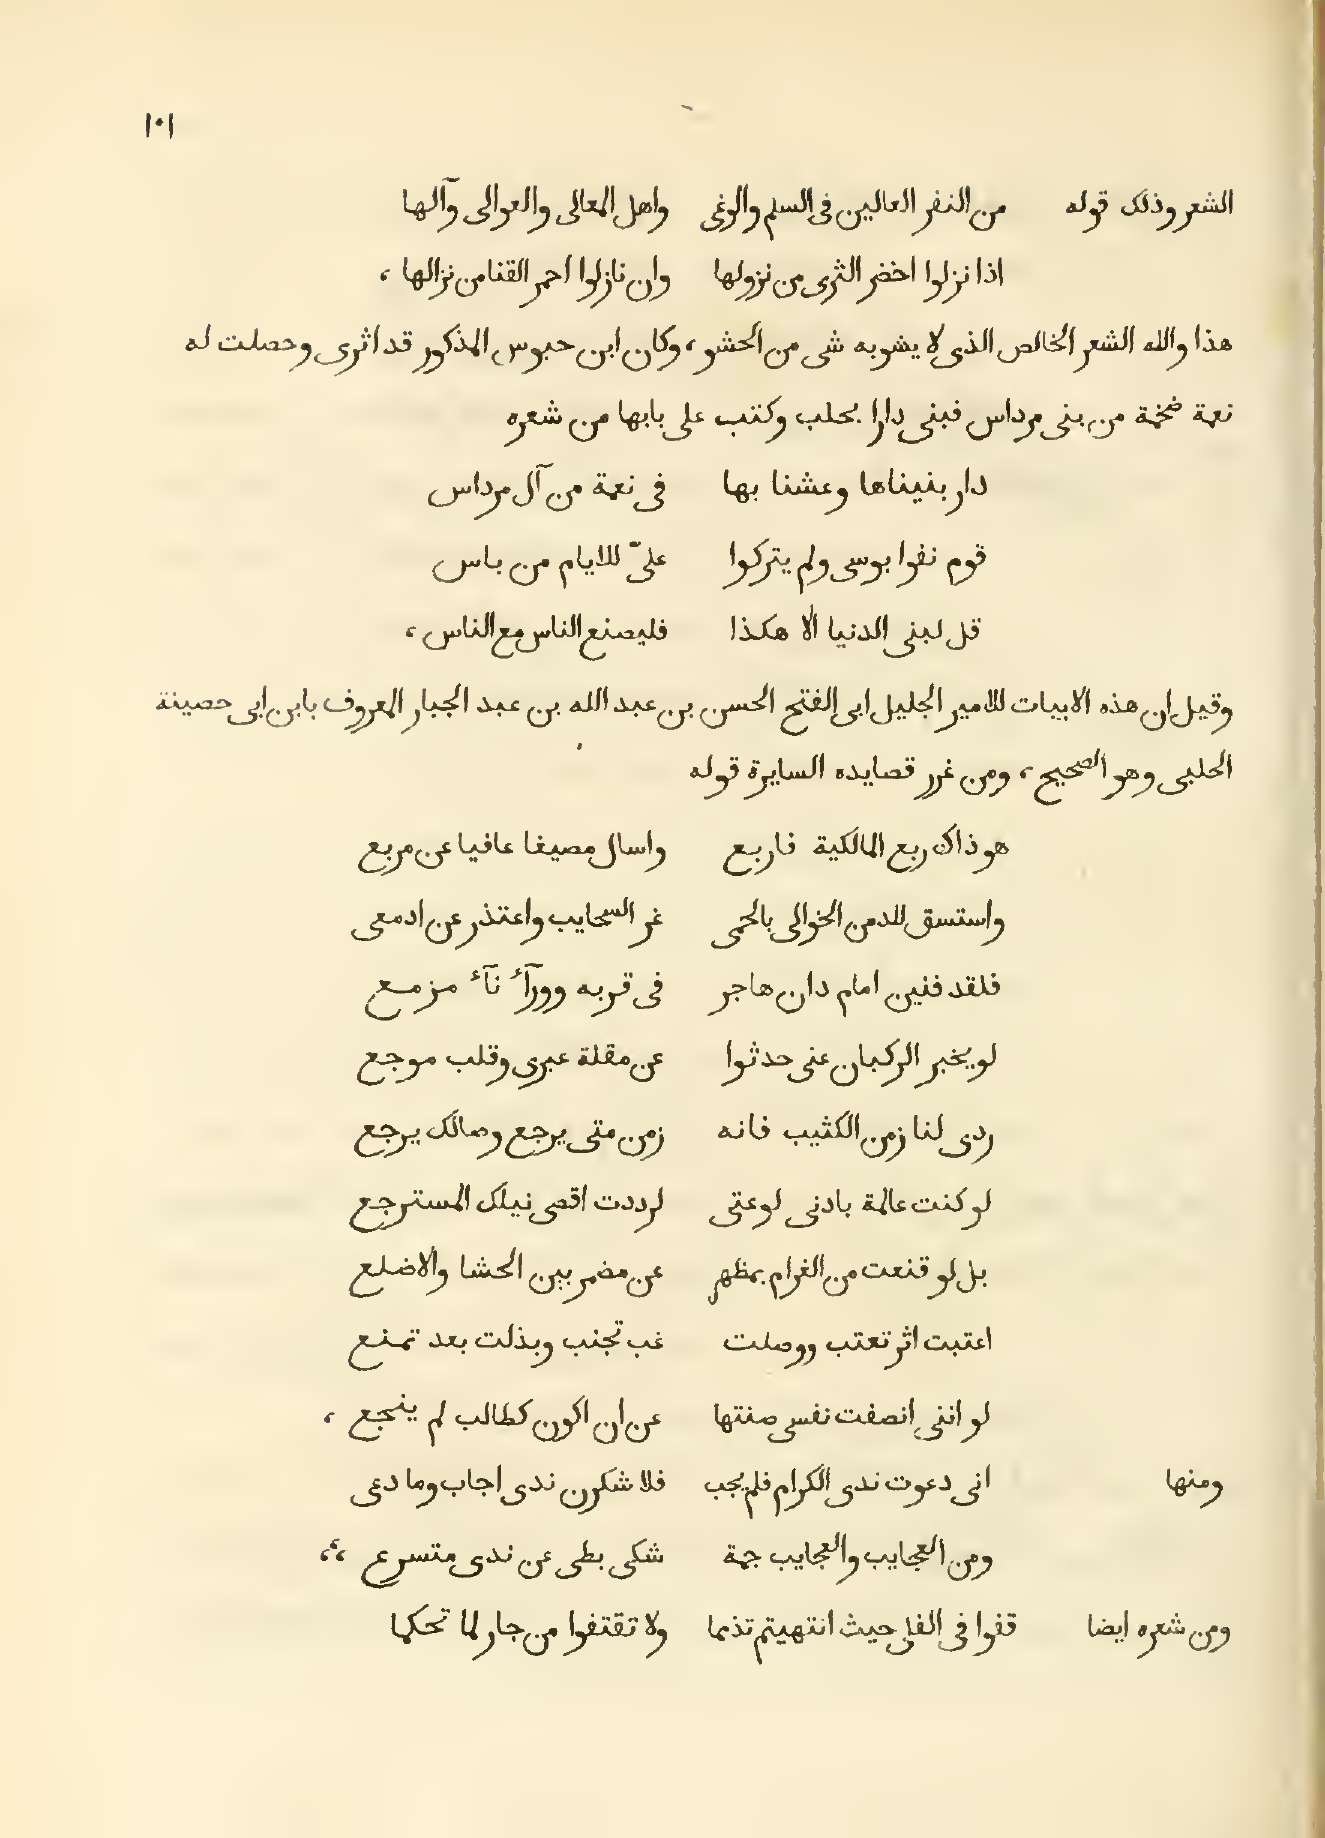 ١٠١
الشعر وذلك قوله من النفر العالين فى السلم والوغى واهل المعالى والعوالى وآلها
اذا نزلوا اخضر الثرى من نزولها وان نازلوا احمر القنا من نزالها ،
هذا والله الشعر الخالص الذى لا يشوبه شى من الحشو ، وكان ابن حبوس المذكور قد اثرى وحصلت له
نعمة ضخمة من بنى مرداس فبنى دارا بحلب وكتب على بابها من شعره
دار بنيناها وعشنا بها فى نعمة من آل مرداس
قوم نفوا بوسى ولم يتركوا علىّ للايام من باس
قل لبنى الدنيا الا هكذا فليصنع الناس مع الناس ،
وقيل ان هذه الابيات للامير الجليل ابى الفتح الحسن بن عبد الله بن عبد الجبار المعروف بابن ابى حصينة
الحلبى وهو الصحيح ، ومن غرر قصايده السايرة قوله
هو ذاك ربع المالكية فاربع واسال مصيفا عافيا عن مربع
واستسق للدمن الخوالى بالحمى غر السحايب واعتذر عن ادمعى
فلقد فنين امام دان هاجر فى قربه وورآء نآء مزمع
لو يخبر الركبان عنى حدثوا عن مقلة عبرى وقلب موجع
ردى لنا زمن الكثيب فانه زمن متى يرجع وصالك يرجع
لو كنت عالمة بادنى لوعتى لرددت اقصى نيلك المسترجع
بل لو قنعت من الغرام بمظهر عن مضمر بين الحشا والاضلع
اعتبت اثر تعتب ووصلت غب تجنب وبذلت بعد تمنع
لو اننى انصفت نفسى صنتها عن ان اكون كطالب لم ينجع ،
ومنها انى دعوت ندى الكرام فلم يجب فلا شكرن ندى اجاب وما دعى
ومن العجايب والعجايب جمة شكى بطى عن ندى متسرع ،،
ومن شعره ايضا قفوا فى القلى حيث انتهيتم تذمما ولا تقتفوا من جار لما تحكما